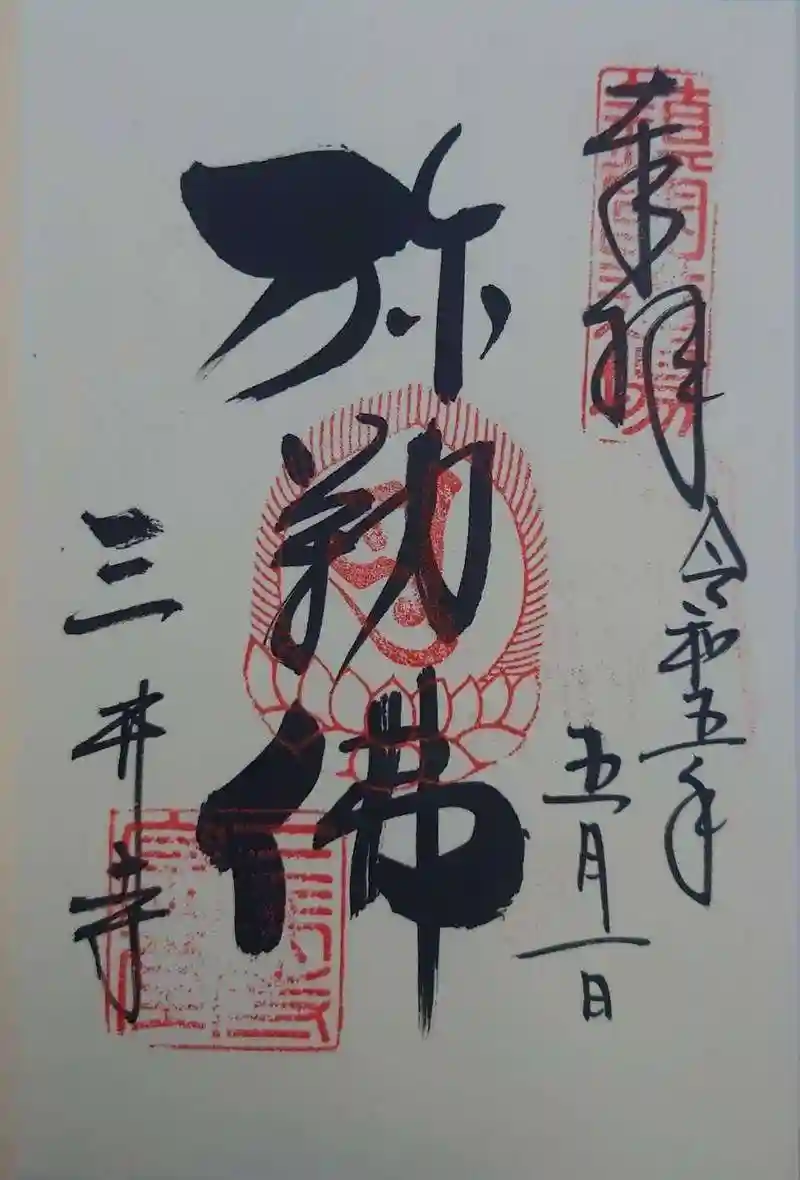 奉拝
令和五年
五月一日
弥勒佛
三井寺